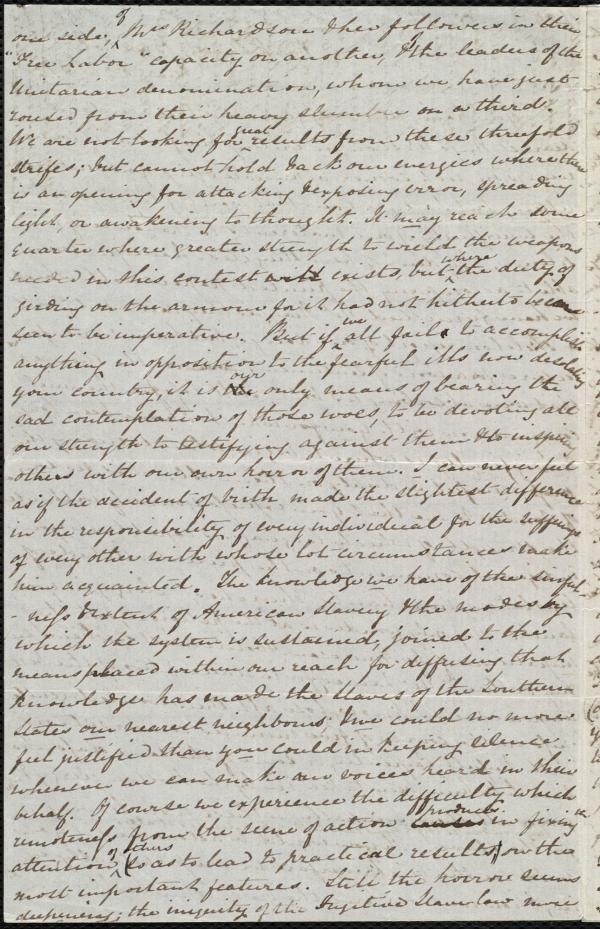 one side, of Mrs Richardson & her followers in their
"Free Labor" capacity on another, & the leaders of the
Unitarian denomination, whom we have just
roused from their heavy slumber on a third.
We are not looking for great results from these threefold
strifes; but cannot hold back our energies where there
is an opening for attacking & exposing error, spreading
light, or awakening to thought. It may reach some
quarter where greater strength to wield the weapons
needed in this contest exists, but where the duty of
girding on the armour for it had not hitherto been
seen to be imperative. But if we all fail to accomplish
anything in opposition to the fearful ills now desolating
your country, it is our only means of bearing the
sad contemplation of those woes, to be devoting all
our strength to testifying against them & to inspire
others with our own horror of them. I can never feel
as if the accident of birth made the slightest difference
in the responsibility of every individual for the sufferings
of every other with whose lot circumstances make
him acquainted. The knowledge we have of the sinful
-ness & extent of American Slavery & the modes by
which the system is sustained, joined to the
means placed within our reach for diffusing that
knowledge has made the slaves of the Southern
States our nearest neighbours; & we could no more
feel justified than you could in keeping silence
whenever we can make our voices heard in their
behalf. Of course we experience the difficulty which
remoteness from the scene of action produces in fixing the
attention of others (so as to lead to practical results) on the
most important features. Still the horror seems
deepening; the iniquity of the Fugitive Slave law more